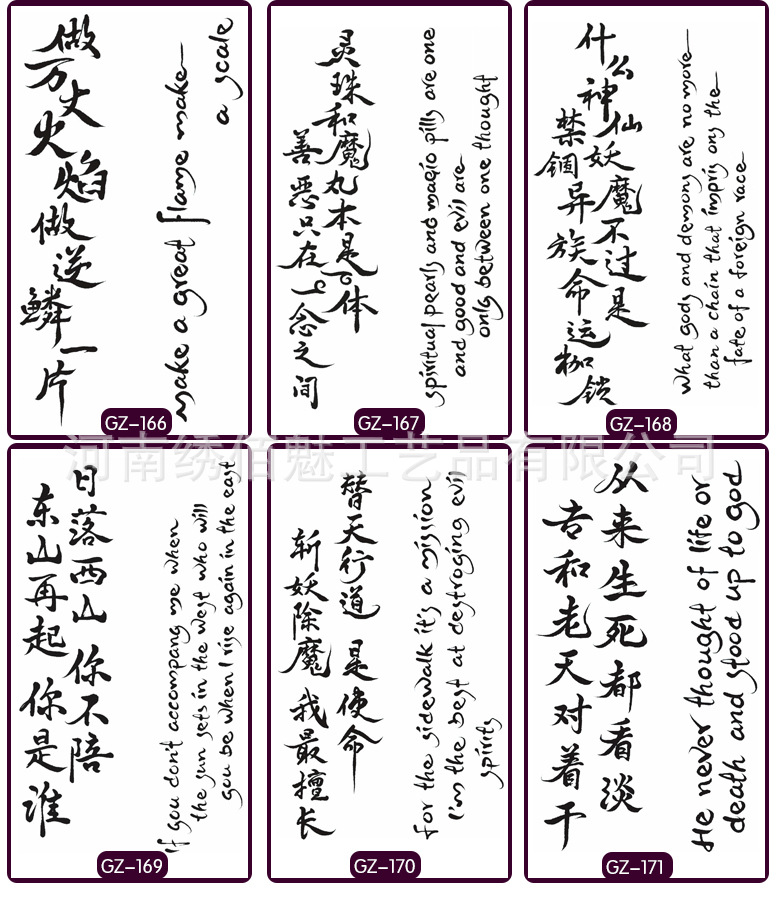 做万丈火焰做逆鳞一片
make a great flame make
a scale
GZ-166
灵珠和魔丸本是一体
善恶只在一念之间
spiritual pearls and magio pills are one
and good and evil are
only between one thought
GZ-167
什么神仙妖魔不过是
禁锢异族命运枷锁
what gods and demons are no more
than a chain that impris ons the
fate of a foreign race
GZ-168
河南绣佰魅工艺品有限公司
日落西山你不陪
东山再起你是谁
If you don't accompany me when
the sun sets in the west who will
you be when I rise again in the east
GZ-169
替天行道 是使命
斩妖除魔 我最擅长
for the sidewalk it's a mission
I'm the best at destroying evil
spirits
GZ-170
从来生死都看淡
和老天对着干
He never thought of life or
death and stood up to god
GZ-171